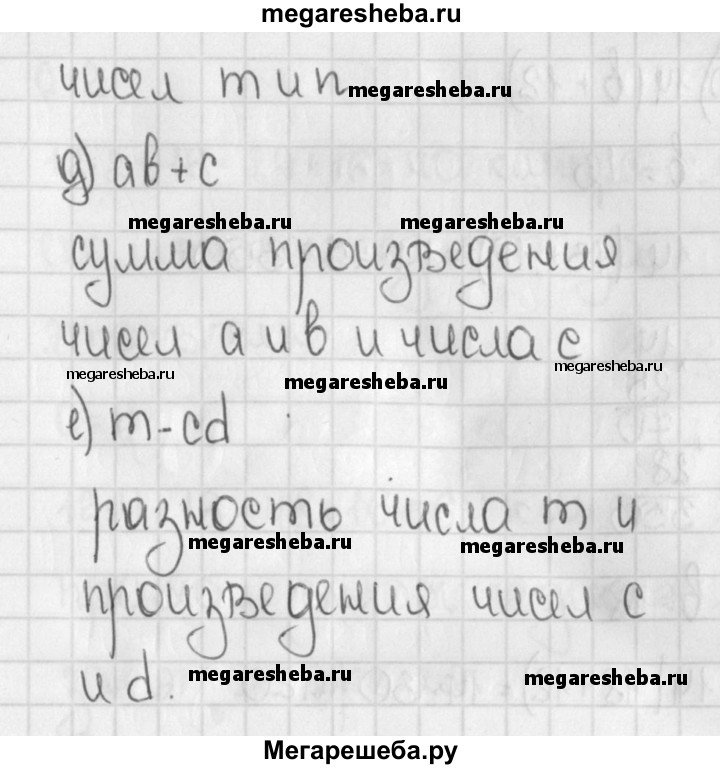 megaresheba.ru
чисел m и n megaresheba.ru
д) ab+c
megaresheba.ru megaresheba.ru
сумма произведения
чисел a и b и числа c
megaresheba.ru megaresheba.ru megaresheba.ru
е) m-cd
разность числа m и
megaresheba.ru megaresheba.ru
произведения чисел c
и d. megaresheba.ru megaresheba.ru
Мегарешеба.ру